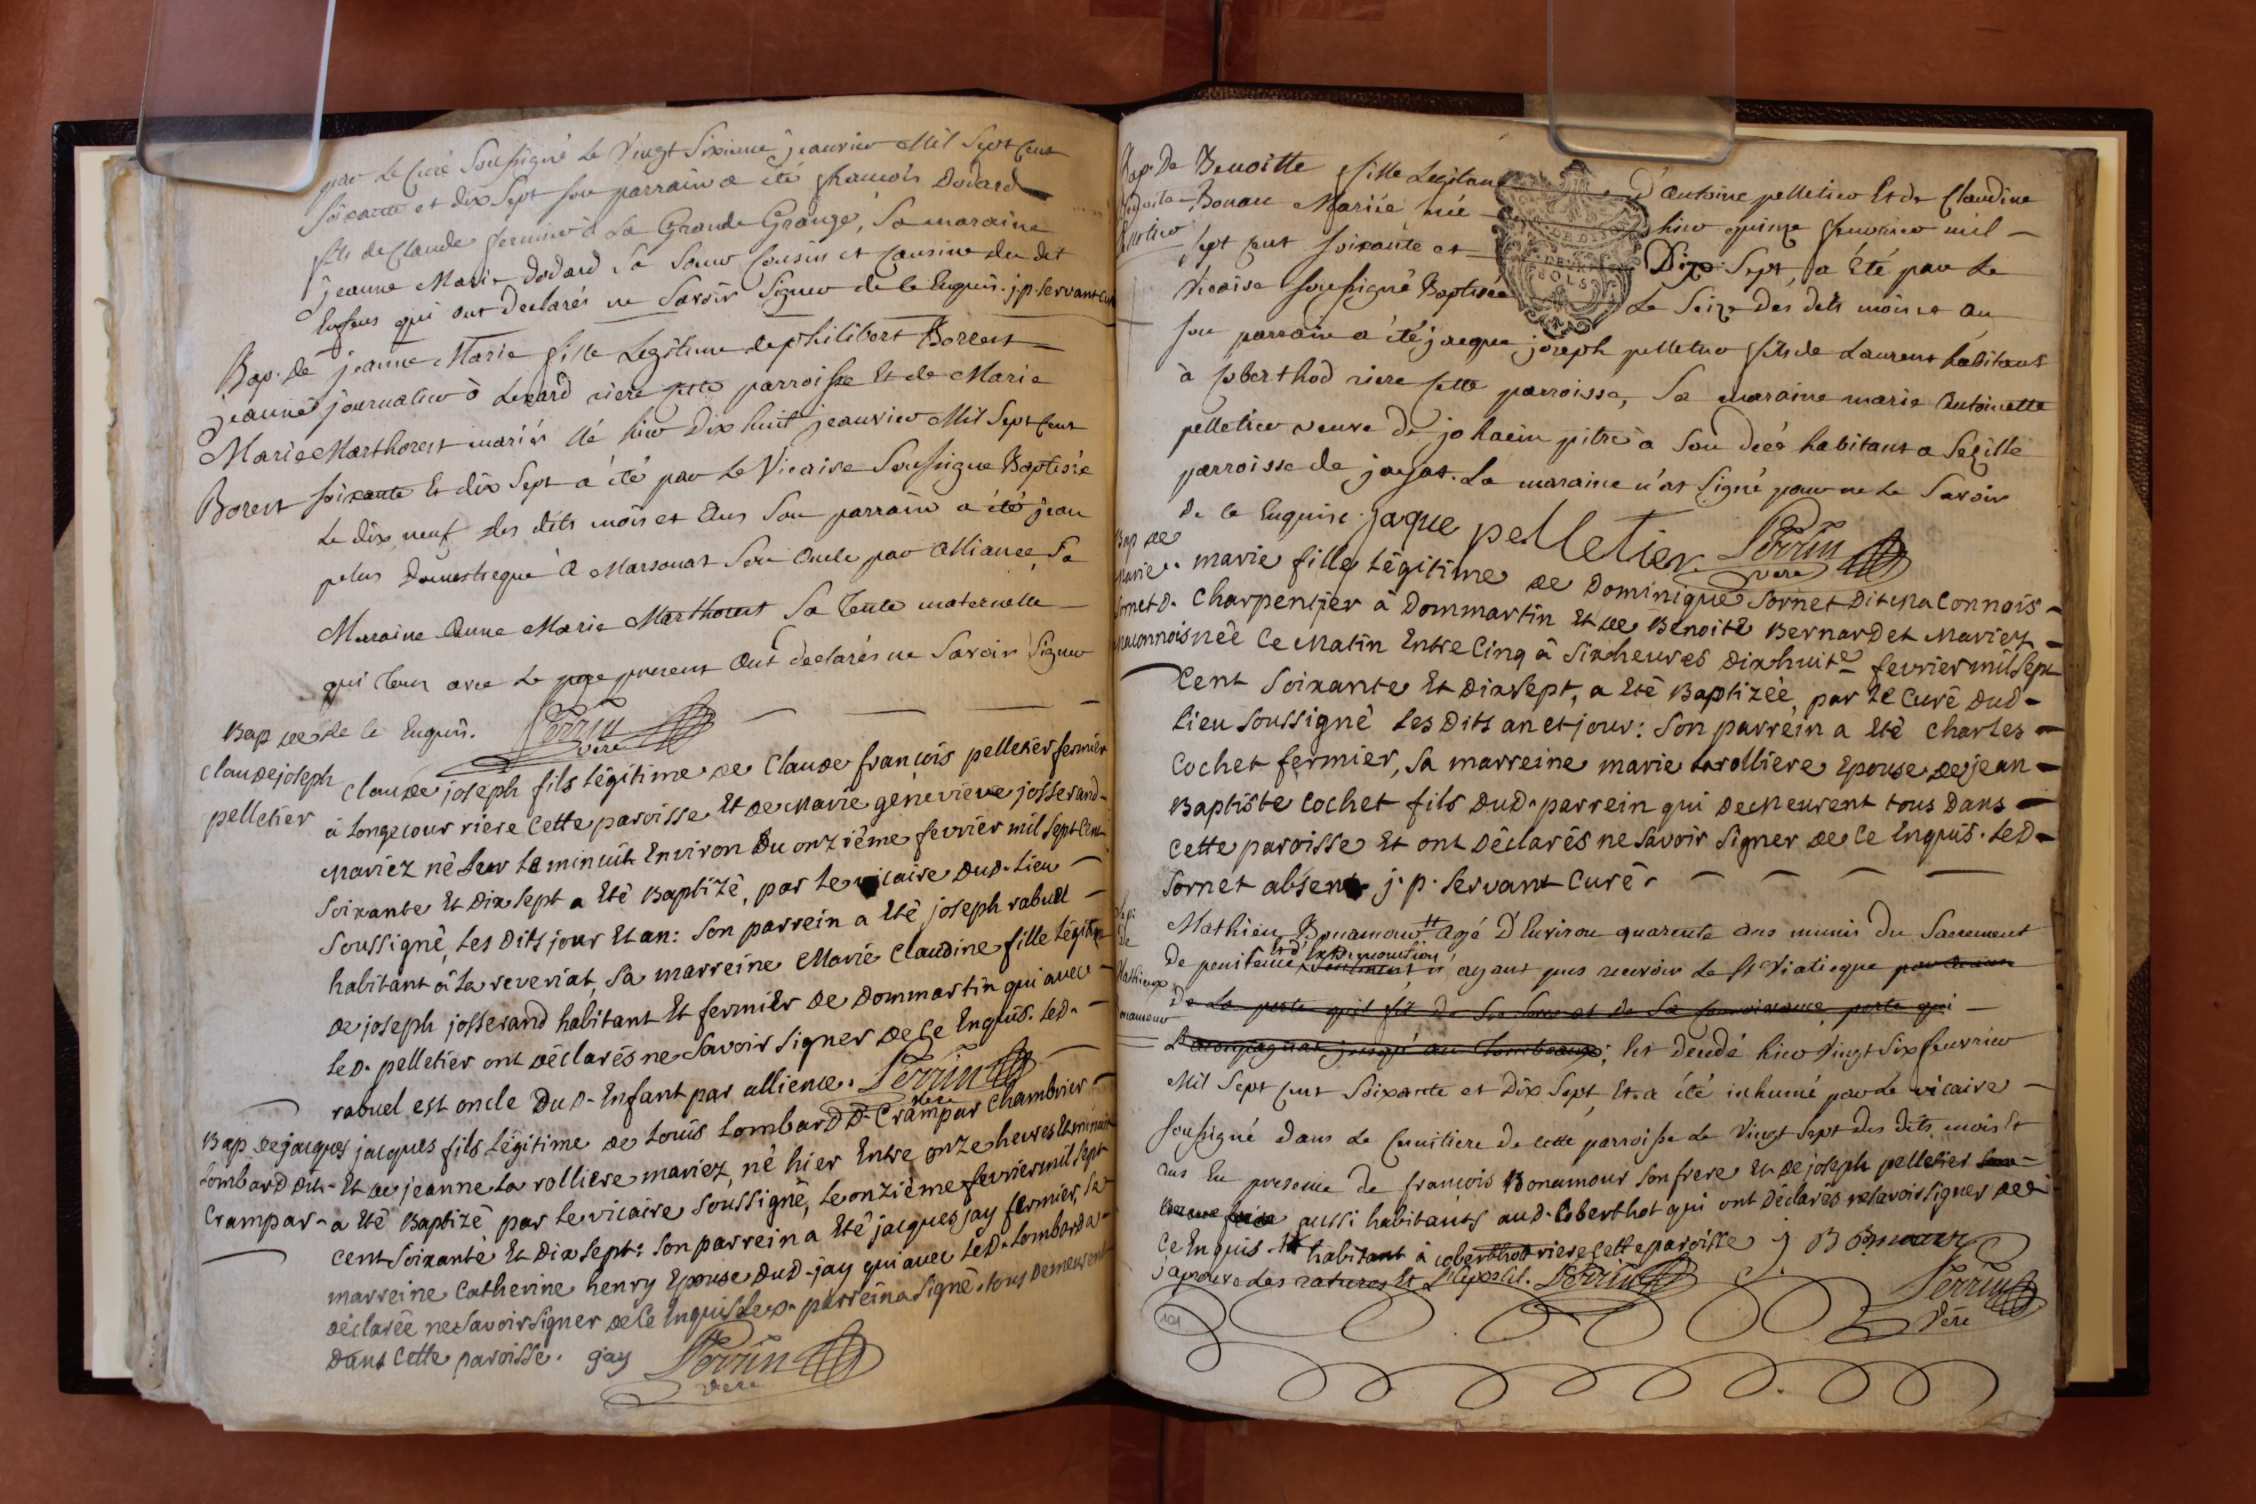 par le Curé Soussigné le Vingt Sixieme jeanvier Mil Sept Cent
soixante et dix Sept son parrain a été francois Dodard
fils de Claude fermier à La Grande Grange, Sa maraine
jeanne Marie Dodard Sa Soeur Cousin et Cousine du dit
Enfens qui ont declarés ne Savoir Signer de ce Enquis. j.p. Servant Curé
Bap. de jeanne Marie fille Legitime de philibert Borrest
jeanne journalier à Lezard riere cette parroisse Et de Marie
Marie Marthorest mariés Né hier Dix huit jeanvier Mil Sept Cent
Borest soixante Et dix Sept a été par Le Vicaire Soussigné Baptisée
Le dix neuf des dits mois et Ans Son parrain a été jean
pelus Domestique à Marsonas Son Oncle par Alliance, Sa
Maraine Anne Marie Marthorest Sa Tente maternelle
qui Tous avec Le pere present Ont declarés ne Savoir Signer
de ce Enquis. Perrin
vere
Bap de
Claude joseph Claude joseph fils légitime de Claude françois pelletier fermier
pelletier à Longecour riere cette paroisse Et de Marie geneviéve josserand
Mariez né sur le minuit Environ Du onziéme fevrier mil sept Cent
Soixante Et Dix sept a Eté Baptizé, par le vicaire Dud. Lieu
Soussigné, les Dits jour Et an: Son parrein a Eté joseph rabuel
habitant à La reveriat, sa marreine Marie Claudine fille légitime
de joseph josserand habitant Et fermier de Dommartin qui avec
led. pelletier ont déclarés ne Savoir signer de Ce Enquis. led.
rabuel est oncle Dud. Enfant par allience. Perrin
vere
Bap. de jacques jacques fils légitime de Loüis Lombard D. Crampar Chambrier
Lombard dit. Et de jeanne La rolliere mariez, né hier Entre onze heures Et minuit
Crampar a Eté Baptizé par le vicaire soussigné, le onziéme fevrier mil sept
Cent Soixante Et Dix sept: son parrein a Eté jacques jay fermier, sa
marreine Catherine henry Epouse Dud. jay qui avec led. Lombard a
déclarée ne Savoir signer de Ce Enquis led. parrein a signé. tous Demeurent
Dans Cette paroisse. gay Perrin
vere
Bap. De Benoitte fille Legitime D'Antoine pelletier Et de Claudine
Bonan Mariée née hier quinze fevrier mil
pelletier sept Cent soixante et Dix Sept a été par Le
Vicaire soussigné Baptisée Le Seize des dits mois et An
son parrain a été jacque joseph pelletier fils de Laurent habitant
à Coberthod riere cette parroisse, Sa maraine marie Antoinette
pelletier veuve de jo pitre à Son decés habitant a Sezille
parroisse de jayat. La maraine n'at Signé pour ne Le Savoir
De ce Enquise. jaque pelletier Perrin
vere
Bap de
Marie marie fille légitime de Dominique Sornet Dit maconnois
Sornet D. Charpentier à Dommartin Et de Benoite Bernardet Mariez
maconnois née ce Matin Entre Cinq à Six heures Dix huite fevrier mil sept
Cent Soixante Et Dix sept, a Eté Baptizée, par le Curé Dud.
Lieu Soussigné les Dits an et jour: Son parrein a Eté Charles
Cochet fermier, sa marreine marie Larolliere Epouse de jean
Baptiste Cochet fils Dud. parrein qui Demeurent tous Dans
Cette paroisse Et ont Déclarés ne Savoir signer de Ce Enquis. led.
Sornet absent j. p. Servant Curé.
Mathieu Bonamour # agé D'Environ quarente ans munis Du Sacrement
De penitence Et d'Extremonction n'ayant pus recevoir Le St Viatique
De La perte qu'il fit de
L'acompagnat jusqu'au tombeau; Est dendé hier Vingt Six feuvrier
Mil Sept Cent Soixante et Dix Sept, Et a été inhumé par Le vicaire
Soussigné Dans Le Cemitiere De cette parroisse Le Vingt Sept Des Dits mois Et
ans En presence de francois Bonamour Son frere Et de joseph pelletier
aussi habitants aud. Coberthot qui ont Déclarés ne savoir signer de
Ce Enquis. # habitant à coberthot riere Cette paroisse j. Bonamour
j'aprouve les ratures Et L'apostil. Perrin Perrin
101 vere